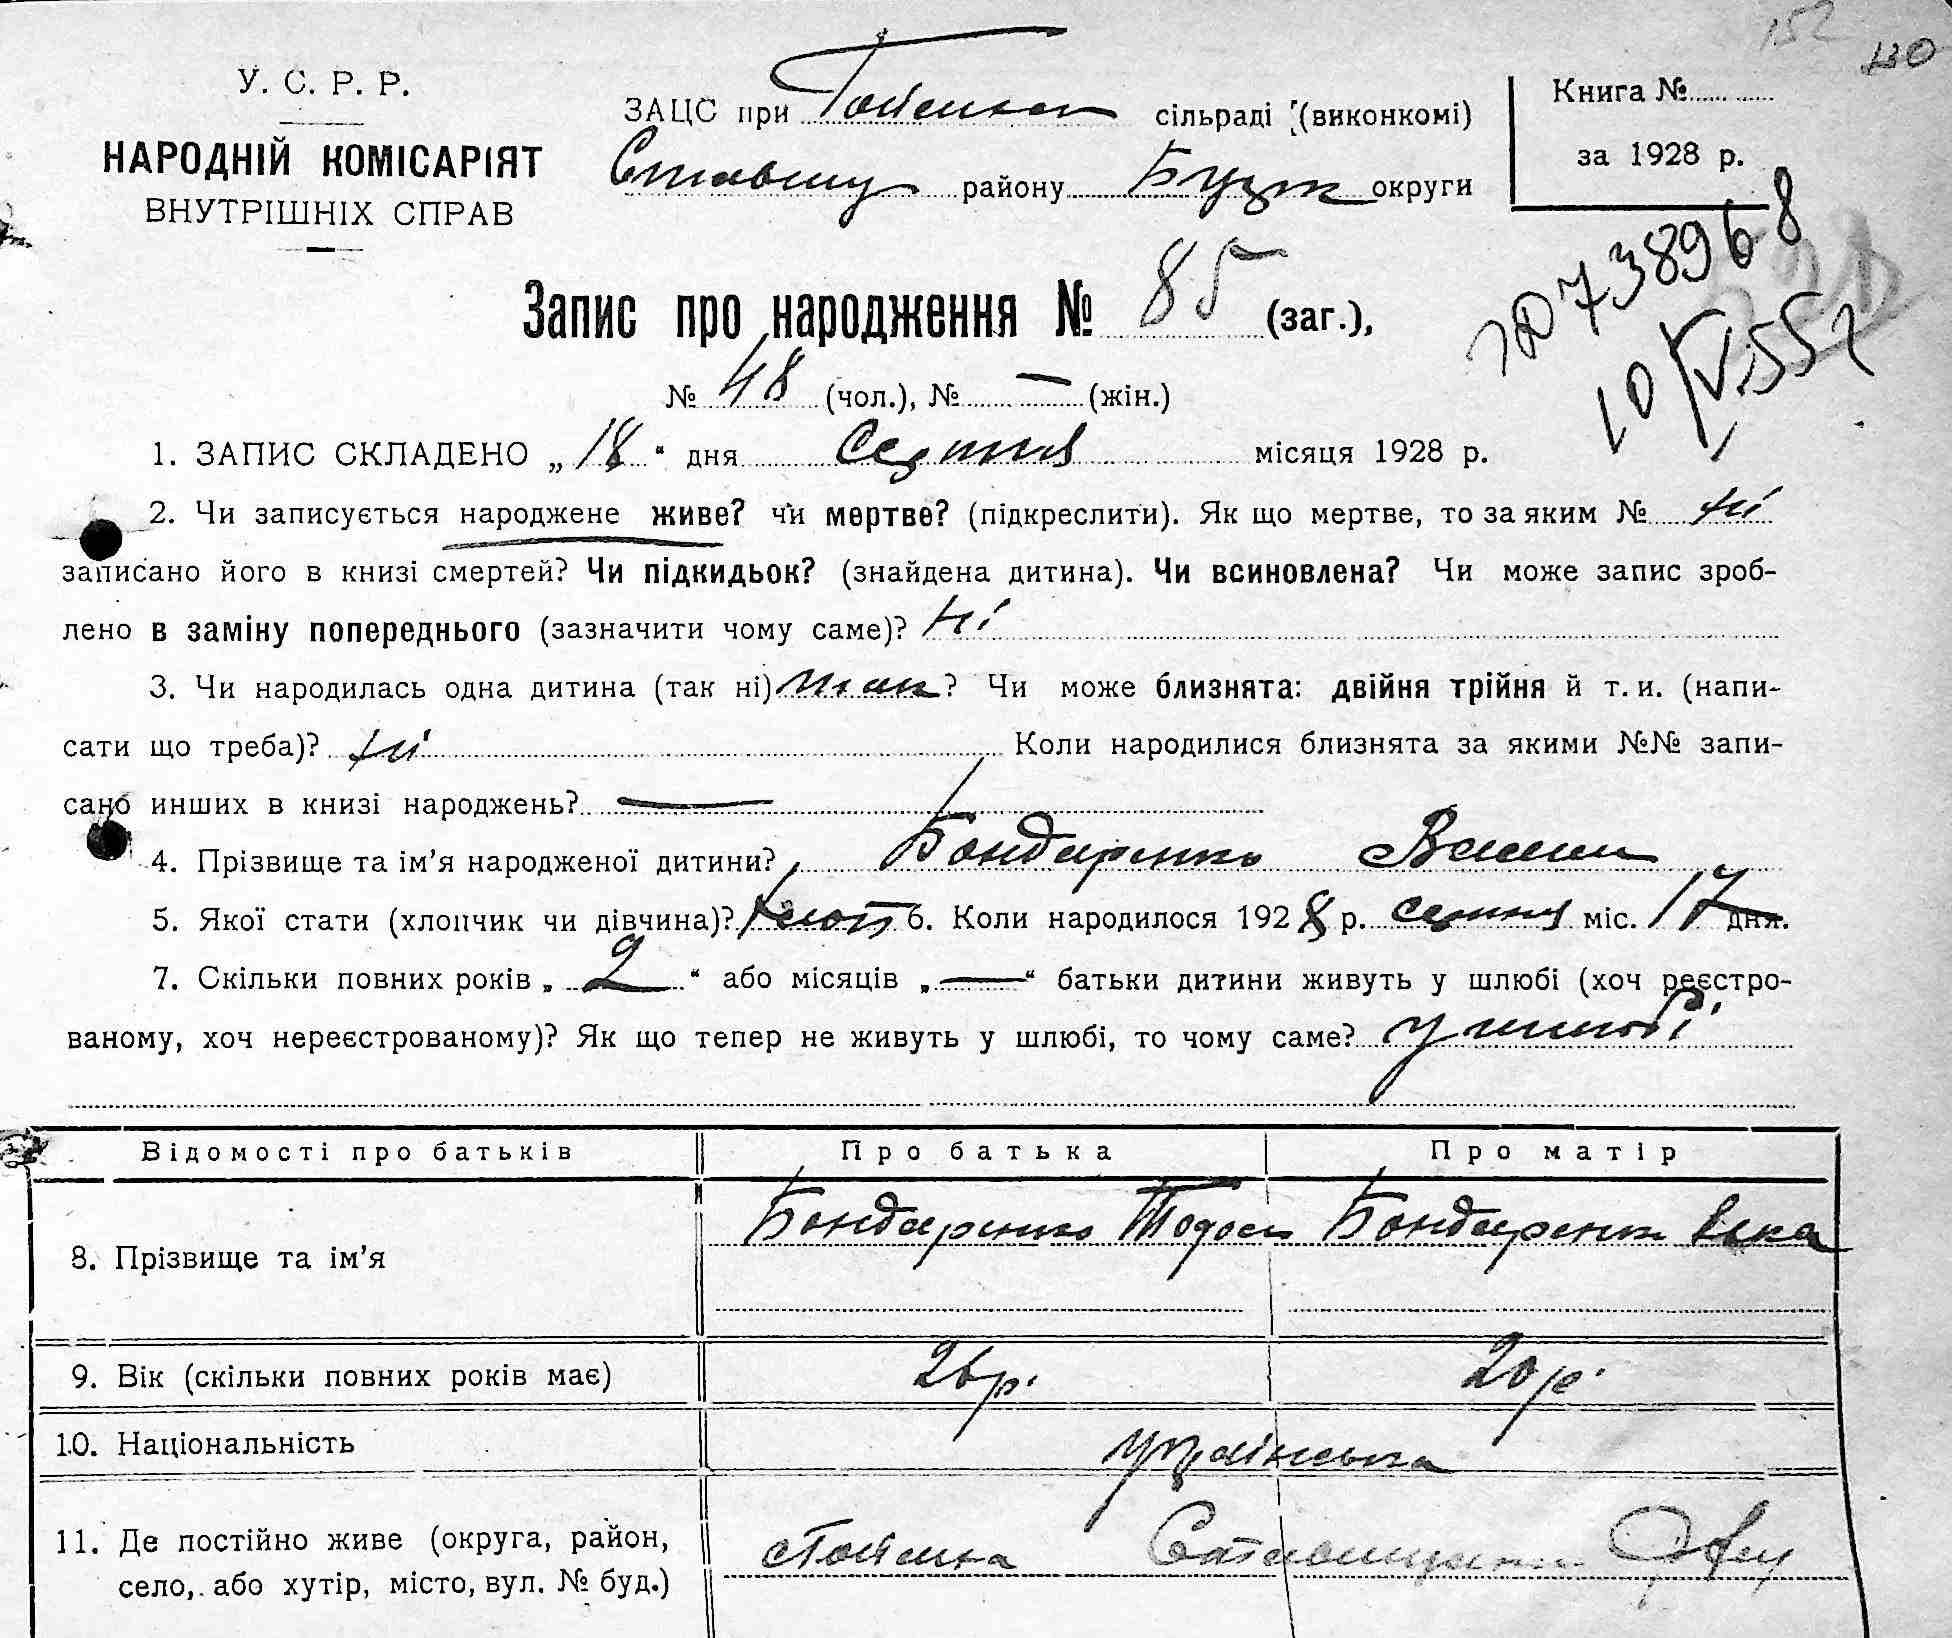 152 130
У. С. Р. Р.
НАРОДНІЙ КОМІСАРІЯТ
ВНУТРІШНІХ СПРАВ
ЗАЦС при сільраді (виконкомі)
району округи
Книга №
за 1928 р.
Запис про народження № 85 (заг.),
№ 48 (чол.), № — (жін.)
1. ЗАПИС СКЛАДЕНО „18“ дня серпня місяця 1928 р.
2. Чи записується народжене живе? чи мертве? (підкреслити). Як що мертве, то за яким № ні
записано його в книзі смертей? Чи підкидьок? (знайдена дитина). Чи всиновлена? Чи може запис зроб-
лено в заміну попереднього (зазначити чому саме)? ні
3. Чи народилась одна дитина (так ні) так? Чи може близнята: двійня трійня й т. и. (напи-
сати що треба)? ні Коли народилися близнята за якими №№ запи-
сано инших в книзі народжень? —
4. Прізвище та ім’я народженої дитини? Бондаренко
5. Якої стати (хлопчик чи дівчина)? хлоп 6. Коли народилося 1928 р. серпня міс. 17 дня.
7. Скільки повних років „2“ або місяців „—“ батьки дитини живуть у шлюбі (хоч реєстро-
ваному, хоч нереєстрованому)? Як що тепер не живуть у шлюбі, то чому саме? у шлюбі
Відомості про батьків Про батька Про матір
8. Прізвище та ім’я Бондаренко Тодось Бондаренк
9. Вік (скільки повних років має) 26 р. 20 р.
10. Національність українська
11. Де постійно живе (округа, район,
село, або хутір, місто, вул. № буд.)